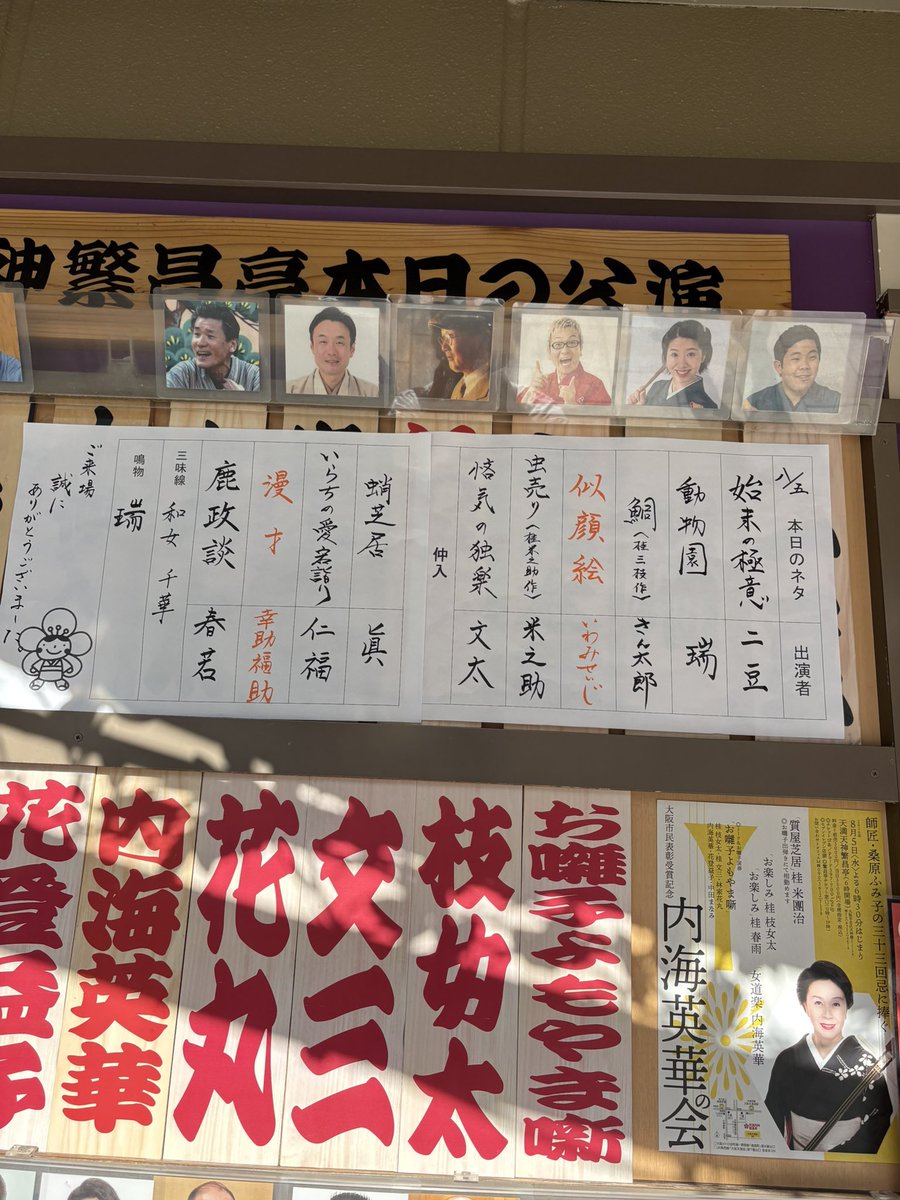 神繁昌亭本日の公演
八/五 本日のネタ 出演者
始末の極意 二豆
動物園 瑞
鯛〈桂三枝作〉 きん太郎
似顔絵 いわみせいじ
虫売り〈桂米之助作〉 米之助
悋気の独楽 文太
仲入
蛸芝居 眞
いらちの愛宕詣り 仁福
漫才 幸助福助
鹿政談 春若
三味線 和女 千華
鳴物 瑞
ご来場
誠に
ありがとうございました
お囃子よもやま噺
枝女太
文三
花丸
内海英華
花登益子
師匠・桑原ふみ子の三十三回忌に捧ぐ
8月5日(水)よる6時30分はじまり
天満天神繁昌亭(6時開場)
質屋芝居 桂 米團治
◎お囃子出囃きたて相勤めます
お楽しみ 桂 枝女太
お楽しみ 桂 春雨
女道楽 内海英華
お囃子よもやま噺
桂 枝女太・桂 文三・林家花丸
内海英華・花登益子・中田まなみ
大阪市民表彰受賞記念
内海英華の会